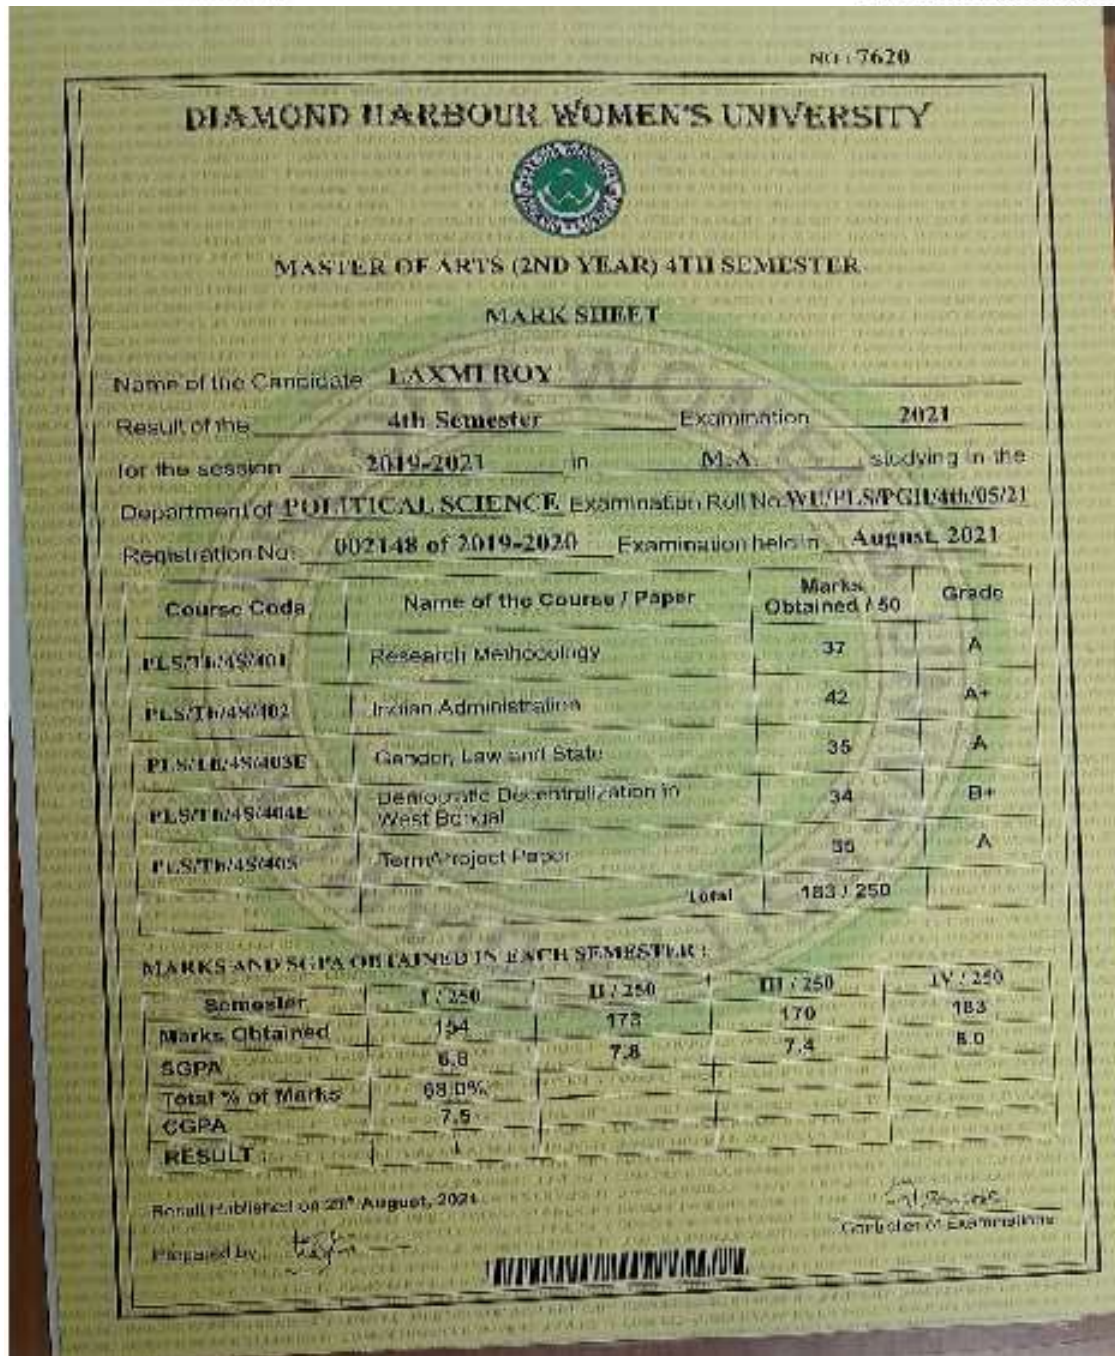 NO : 7620
DIAMOND HARBOUR WOMEN'S UNIVERSITY
MASTER OF ARTS (2ND YEAR) 4TH SEMESTER
MARK SHEET
Name of the Candidate LAXMI ROY
Result of the 4th Semester Examination 2021
for the session 2019-2021 in M.A. studying in the
Department of POLITICAL SCIENCE Examination Roll No. WU/PLS/PGII/4th/05/21
Registration No: 002148 of 2019-2020 Examination held in August, 2021
Course Code Name of the Course / Paper Marks Obtained / 50 Grade
PLS/Th/4S/401 Research Methodology 37 A
PLS/Th/4S/402 Indian Administration 42 A+
PLS/Th/4S/403E Gender, Law and State 35 A
PLS/Th/4S/404E Democratic Decentralization in West Bengal 34 B+
PLS/Th/4S/405 Term/Project Paper 35 A
Total 183 / 250
MARKS AND SGPA OBTAINED IN EACH SEMESTER :
Semester I / 250 II / 250 III / 250 IV / 250
Marks Obtained 154 173 170 183
SGPA 6.8 7.8 7.4 8.0
Total % of Marks 68.0%
CGPA 7.5
RESULT I
Result Published on August, 2021
Controller of Examinations
Prepared by